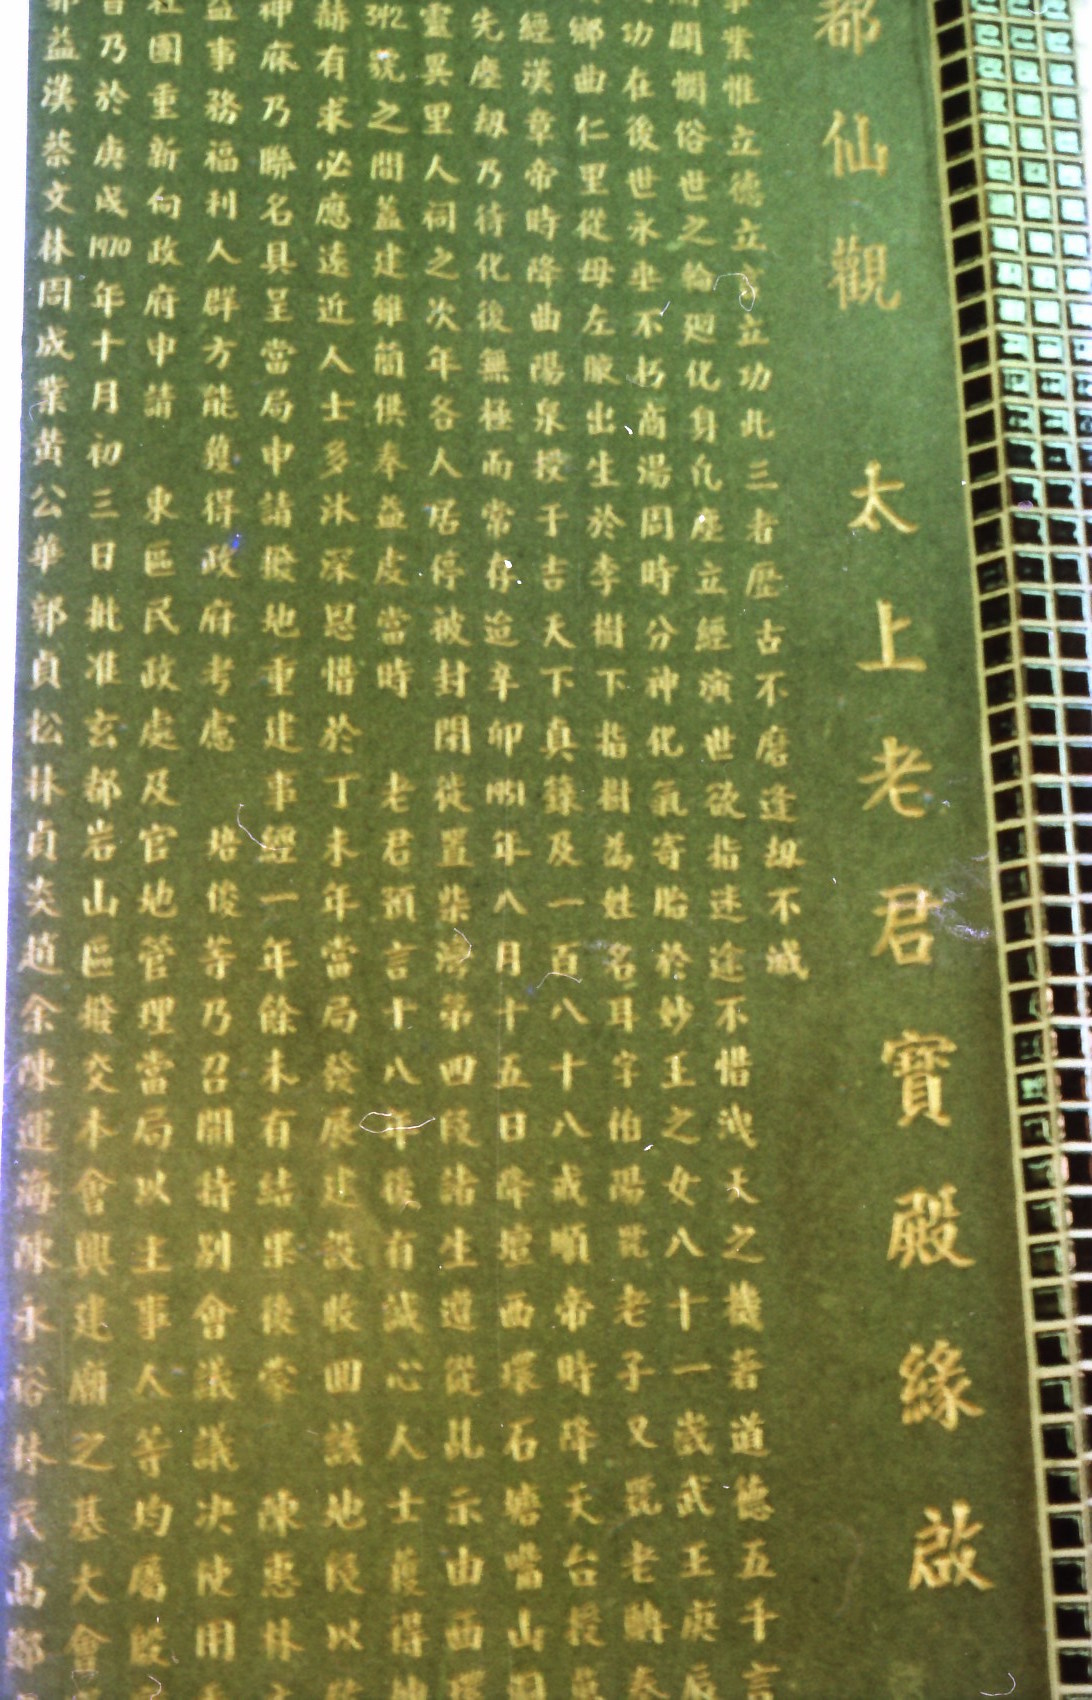 都仙觀　太上老君寶殿緣啟
業惟立德立言立功此三者歷古不磨逢劫不滅
閣憫俗世之輪廻化身凡塵立經演世欲指迷途不惜洩天之機著道德五千言
功在後世永垂不朽商湯周時分神化氣寄胎於妙王之女八十一歲武王庚辰
鄉曲仁里從母左腋出生於李樹下指樹為姓名耳字伯陽號老子又號老聃
經漢章帝時降曲陽泉授于吉天下真籙及一百八十八戒順帝時降天台授
先塵劫乃待化後無極而常存迨辛卯1951年八月十五日降壇西環石塘嘴山
靈異里人祠之次年各人居停被封閉徙置柴灣第四段諸生遵從乩示由西環
392號之間蓋建雖簡供奉益虔當時　老君預言十八年後有誠心人士護得神
赫有求必應遠近人士多沐深恩惜於丁未年當局發展建設收回該地段以
神庥乃聯名具呈當局申請撥地重建事經一年餘未有結果後常　陳惠林
益事務福利人群方能獲得政府考慮　培俊等乃召開特別會議議決使用
社團重新向政府申請　東區民政處及官地管理當局以主事人等均屬殷
乃於庚戌1970年十月初三日批准玄都岩山區撥交本會興建廟之基大會
益漢蔡文林周成業黃公華郭貞松林貞炎趙余陳運海陳水裕林民高鄭